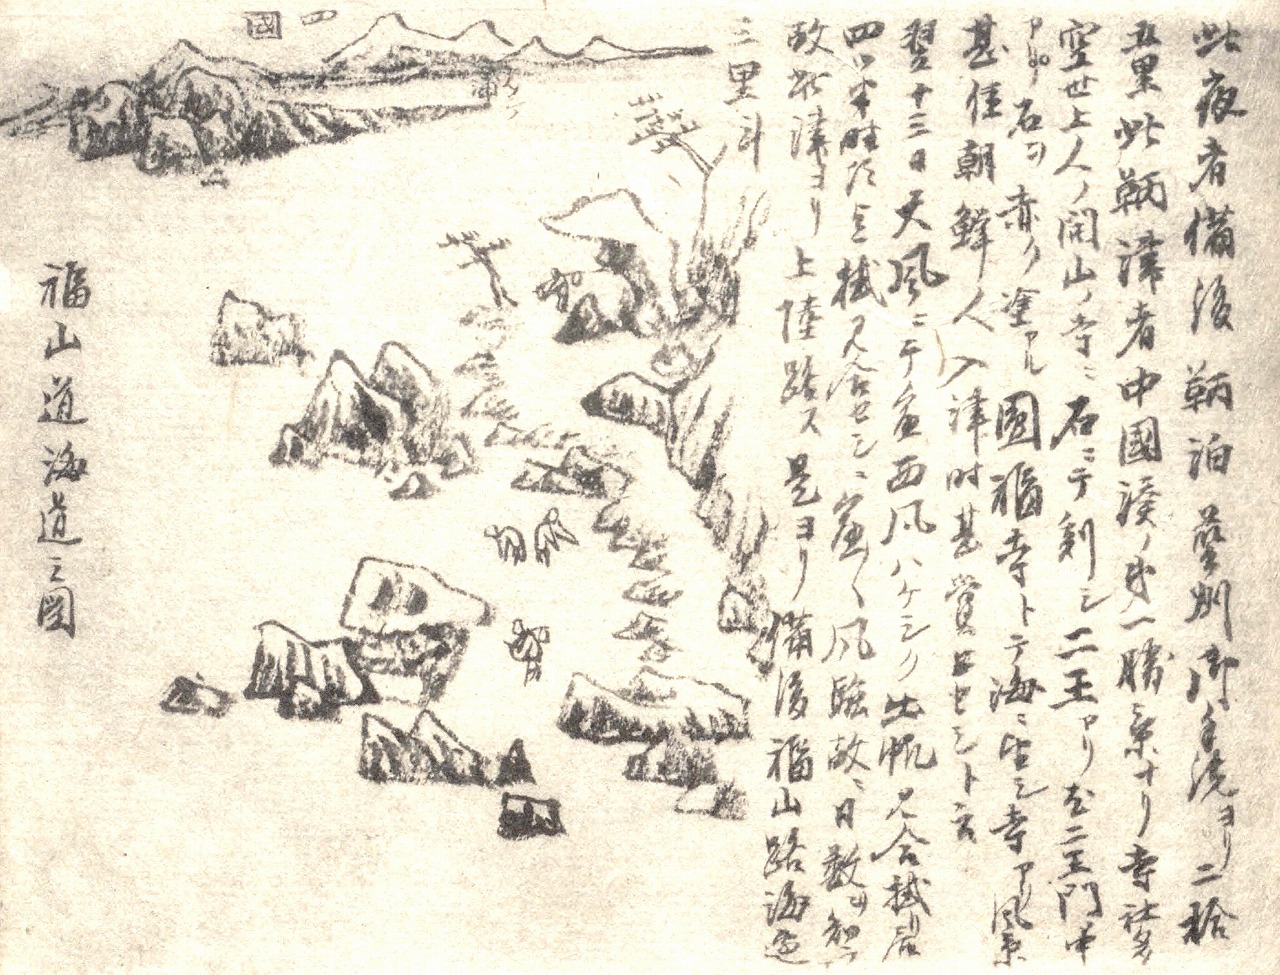 此夜者備後鞆泊藝州御手洗ヨリ二拾
五里此鞆津者中國湊ノ第一勝景ナリ寺社多
空世上人ノ開山ノ寺ニ石ニテ刻シ二王アリ尤二王門中
石ヲ赤ク塗アル圓福寺トテ海ニ望シ寺アリ風景
甚佳朝鮮人入津時甚賞セシト云
翌十三日天風ニテ西風ハケシク出帆見合
四ツ半時見合セシニ風強故ニ日数ヲ
故此津ヨリ上陸路ス是ヨリ備後福山路海辺
三里斗
四國
福山道海道之図